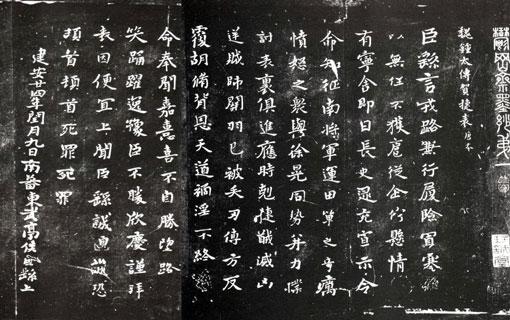 鬱岡齋墨妙
魏鍾太傅賀捷表唐本
臣繇言戎路兼行履險冒寒臣
以無任不獲扈從企佇懸情無
有寧舍即日長史逮充宣示令
命知征南將軍運田單之奇厲
憤怒之衆與徐晃同勢并力撲
討表裏俱進應時剋捷馘滅凶
逆賊帥關羽已被矢刃傅方反
覆胡脩背恩天道禍淫不終厥
命奉聞嘉憙喜不自勝望路載
笑踊躍逸豫臣不勝欣慶謹拜
表因便宜上聞臣繇誠惶誠恐
頓首頓首死罪死罪
建安廿四年閏月九日南蕃東武亭侯臣繇上